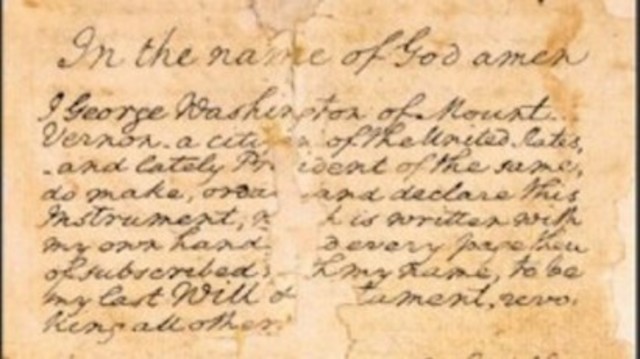 In the name of God amen
I George Washington of Mount
Vernon a citizen of the United States,
and lately President of the same,
do make, and declare this
Instrument, h is written with
my own hand every page there
of subscribed h my name, to be
my last Will & tament, revo
king all other